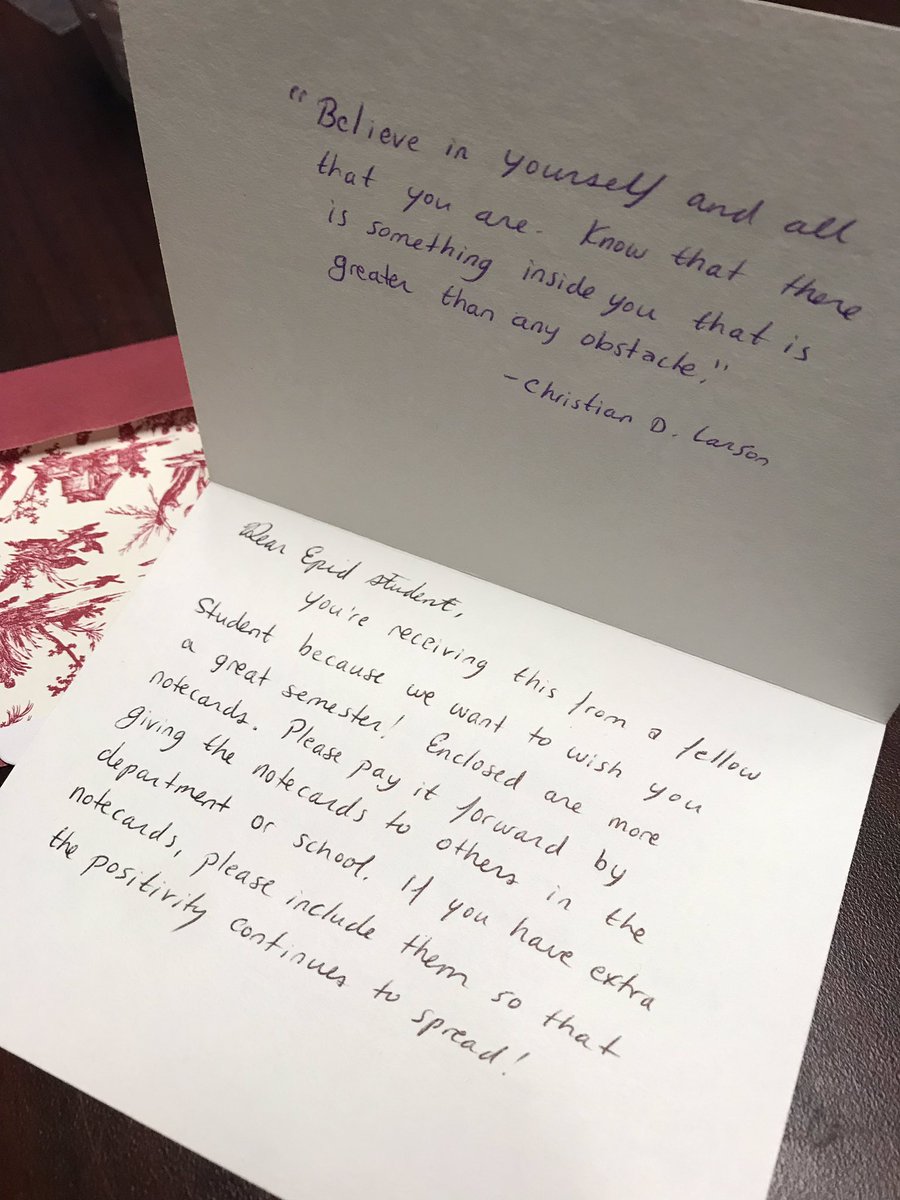 "Believe in yourself and all
that you are. Know that there
is something inside you that is
greater than any obstacle."
- Christian D. Larson
Dear Epid student,
you're receiving this from a fellow
student because we want to wish you
a great semester! Enclosed are more
notecards. Please pay it forward by
giving the notecards to others in the
department or school. If you have extra
notecards, please include them so that
the positivity continues to spread!